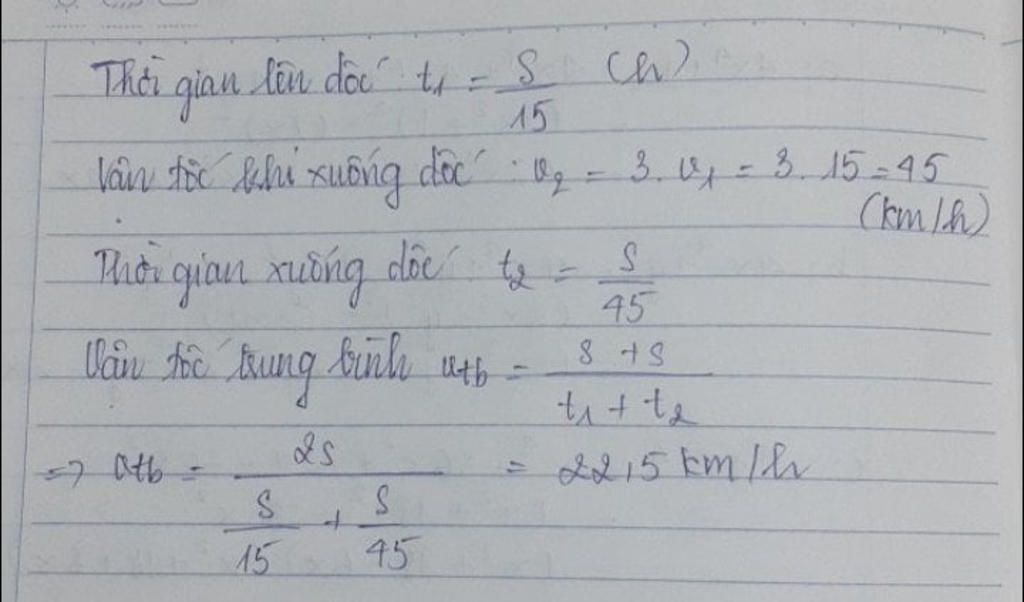 Thời gian lên dốc t₁ = S/15 (h)
Vận tốc khi xuống dốc : v₂ = 3. v₁ = 3. 15 = 45
(km/h)
Thời gian xuống dốc t₂ = S/45
Vận tốc trung bình vtb = S + S / t₁ + t₂
=> vtb = 2S / S/15 + S/45 = 22,5 km/h